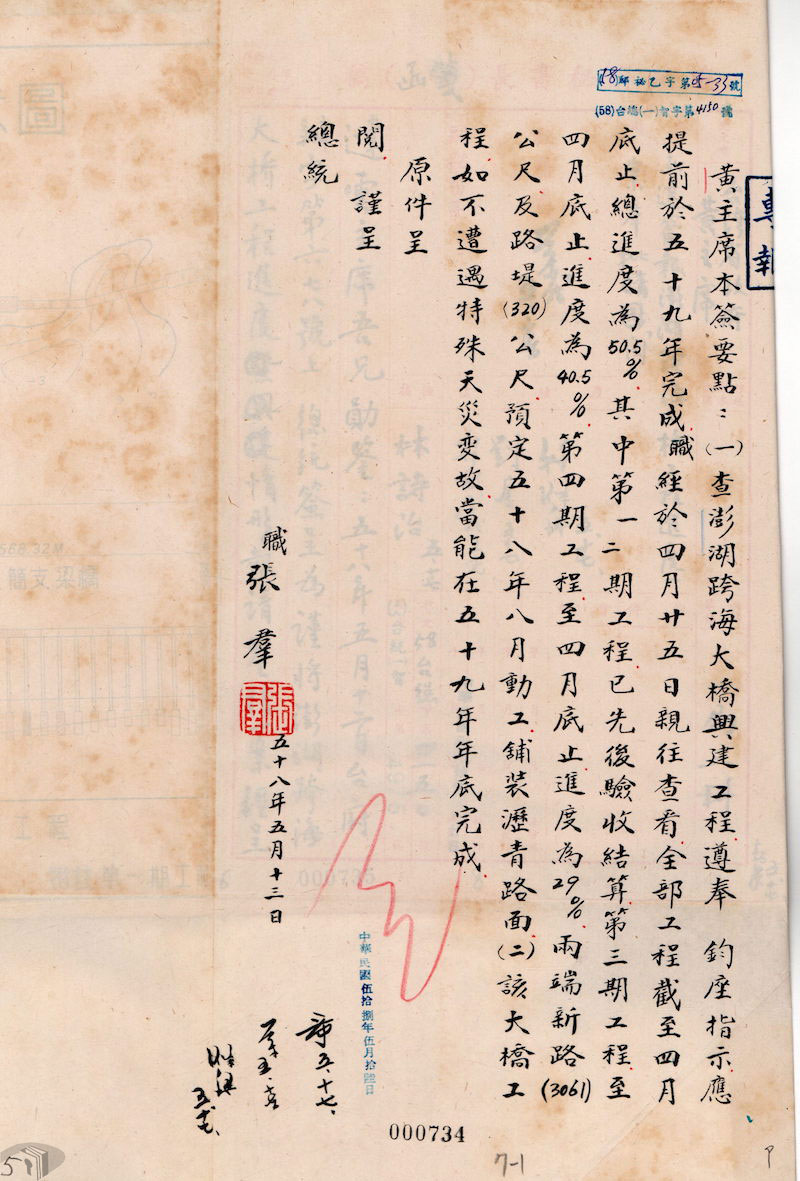 專報
(58)台統(一)智字第4150號
黃主席本簽要點：(一)查澎湖跨海大橋興建工程遵奉　鈞座指示應
提前於五十九年完成職經於四月廿五日親往查看全部工程截至四月
底止總進度為50.5%其中第一二期工程已先後驗收結算第三期工程至
四月底止進度為40.5%第四期工程至四月底止進度為29%兩端新路(3061)
公尺及路堤(320)公尺預定五十八年八月動工舖裝瀝青路面(二)該大橋工
程如不遭遇特殊天災變故當能在五十九年年底完成
原件呈
閱　謹呈
總統
職　張羣
張羣
五十八年五月十三日
中華民國伍拾捌年伍月拾陸日
五、十七、
000734
7-1
568.32M
簡支梁橋
圖